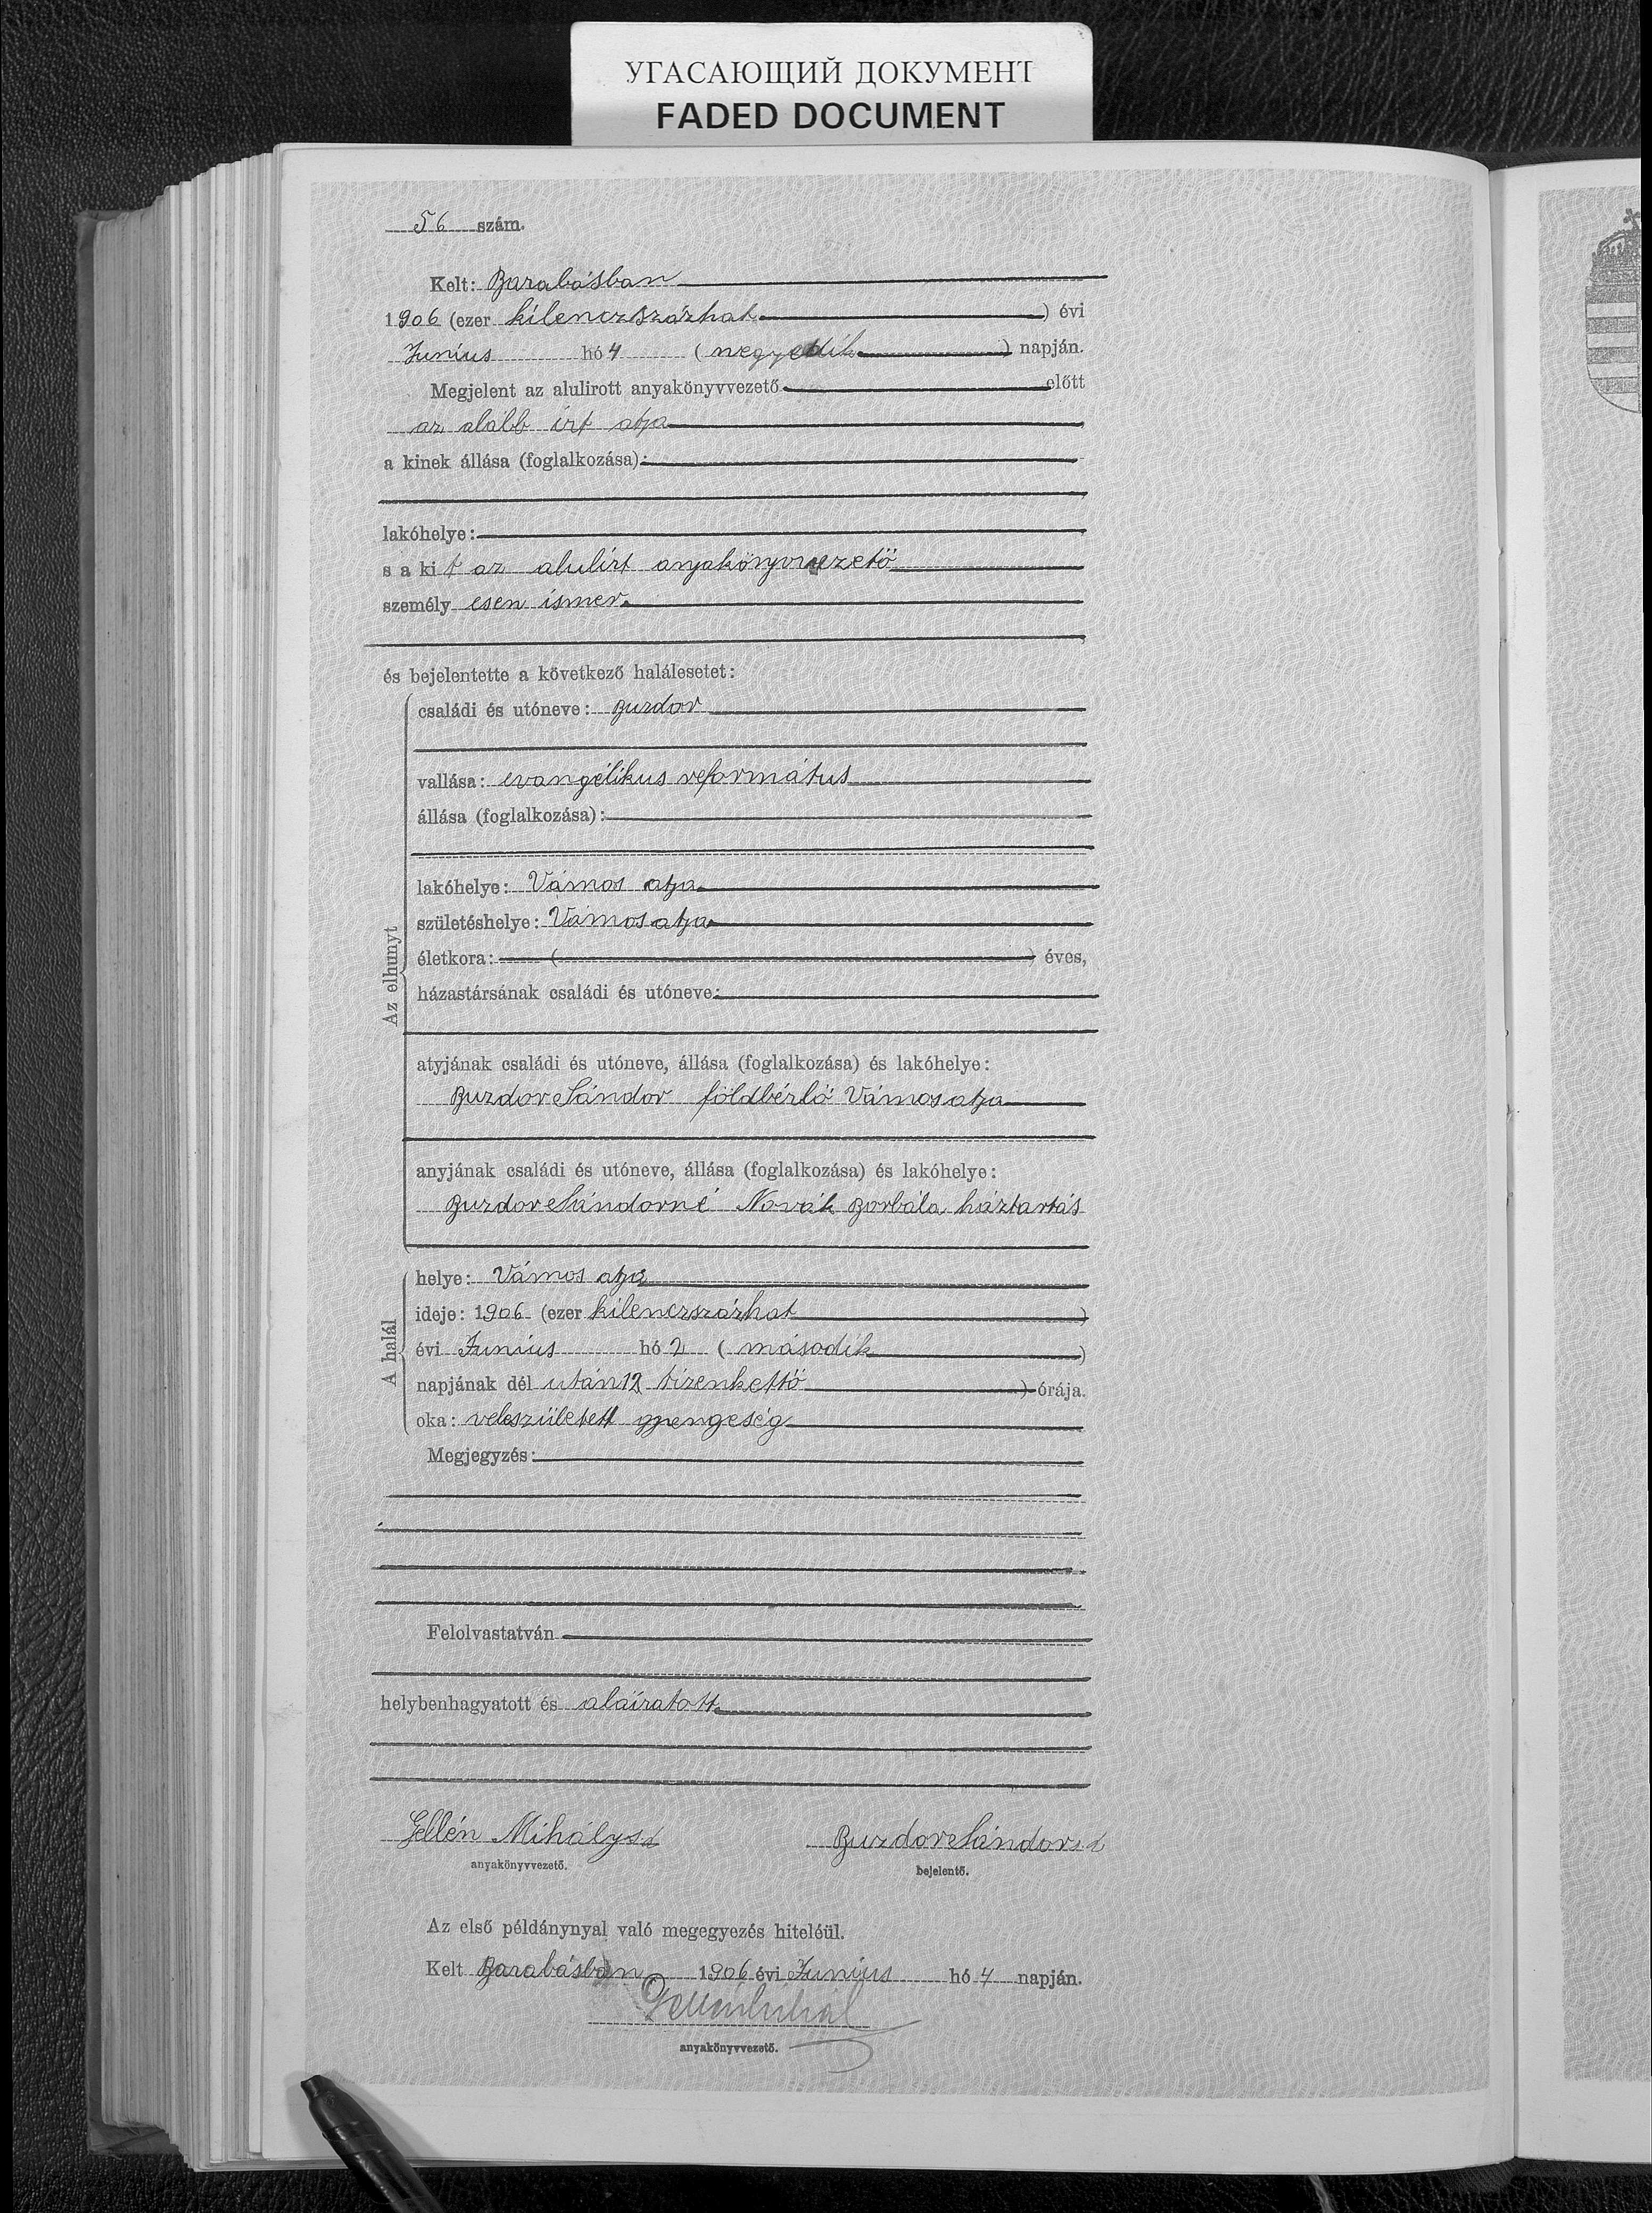 УГАСАЮЩИЙ ДОКУМЕНТ
FADED DOCUMENT
56 szám.
Kelt: Barabásban
1906 (ezer kilenczszázhat ) évi
Junius hó 4 ( negyedik ) napján.
Megjelent az alulirott anyakönyvvezető előtt
az alább írt atya
a kinek állása (foglalkozása):
lakóhelye:
s a kit az alulírt anyakönyvvezető
személyesen ismer
és bejelentette a következő halálesetet:
Az elhunyt
családi és utóneve: Buzdor
vallása: evangélikus református
állása (foglalkozása):
lakóhelye: Vámos atya
születéshelye: Vámosatya
életkora: ( ) éves,
házastársának családi és utóneve:
atyjának családi és utóneve, állása (foglalkozása) és lakóhelye:
Buzdor Sándor földbérlő Vámosatya
anyjának családi és utóneve, állása (foglalkozása) és lakóhelye:
Buzdor Sándorné Novák Borbála háztartás
A halál
helye: Vámos atya
ideje: 1906 (ezer kilenczszázhat )
évi Junius hó 2 ( második )
napjának dél után 12 tizenkettő ) órája.
oka: veleszületett gyengeség
Megjegyzés:
Felolvastatván
helybenhagyatott és aláíratott
Gellén Mihály s.k. Buzdor Sándor s.k.
anyakönyvvezető. bejelentő.
Az első példánynyal való megegyezés hiteléül.
Kelt Barabásban 1906 évi Junius hó 4 napján.
anyakönyvvezető.